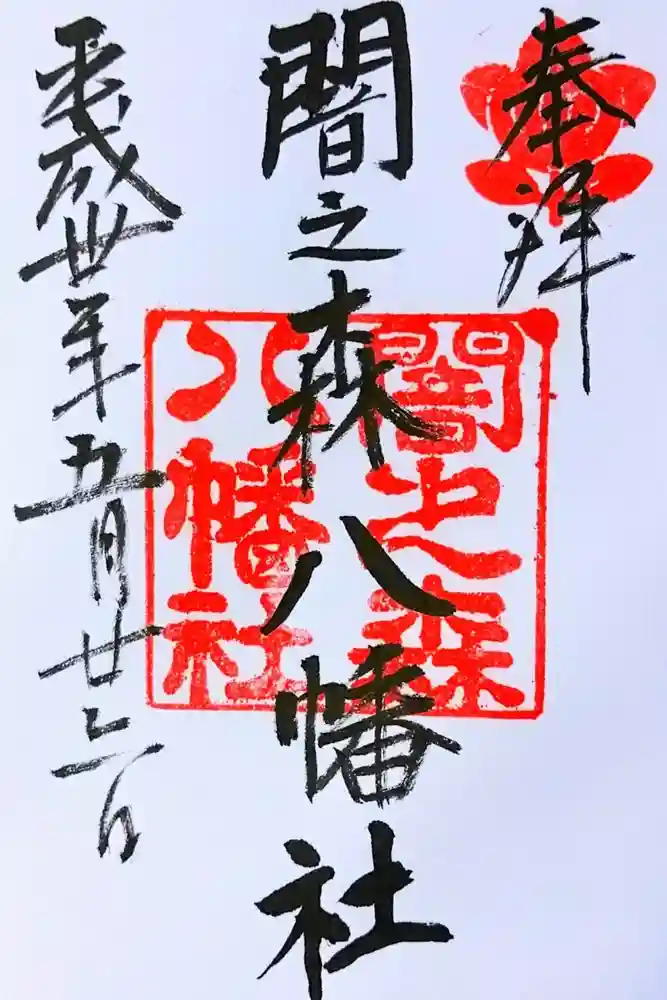 奉拝
闇之森八幡社
平成卅年五月廿六日
闇之森
八幡社